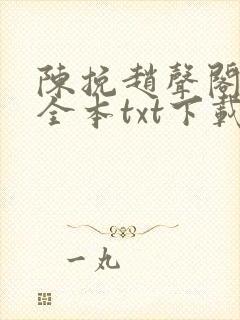 陳挽趙聲閣
全本txt下載
一丸